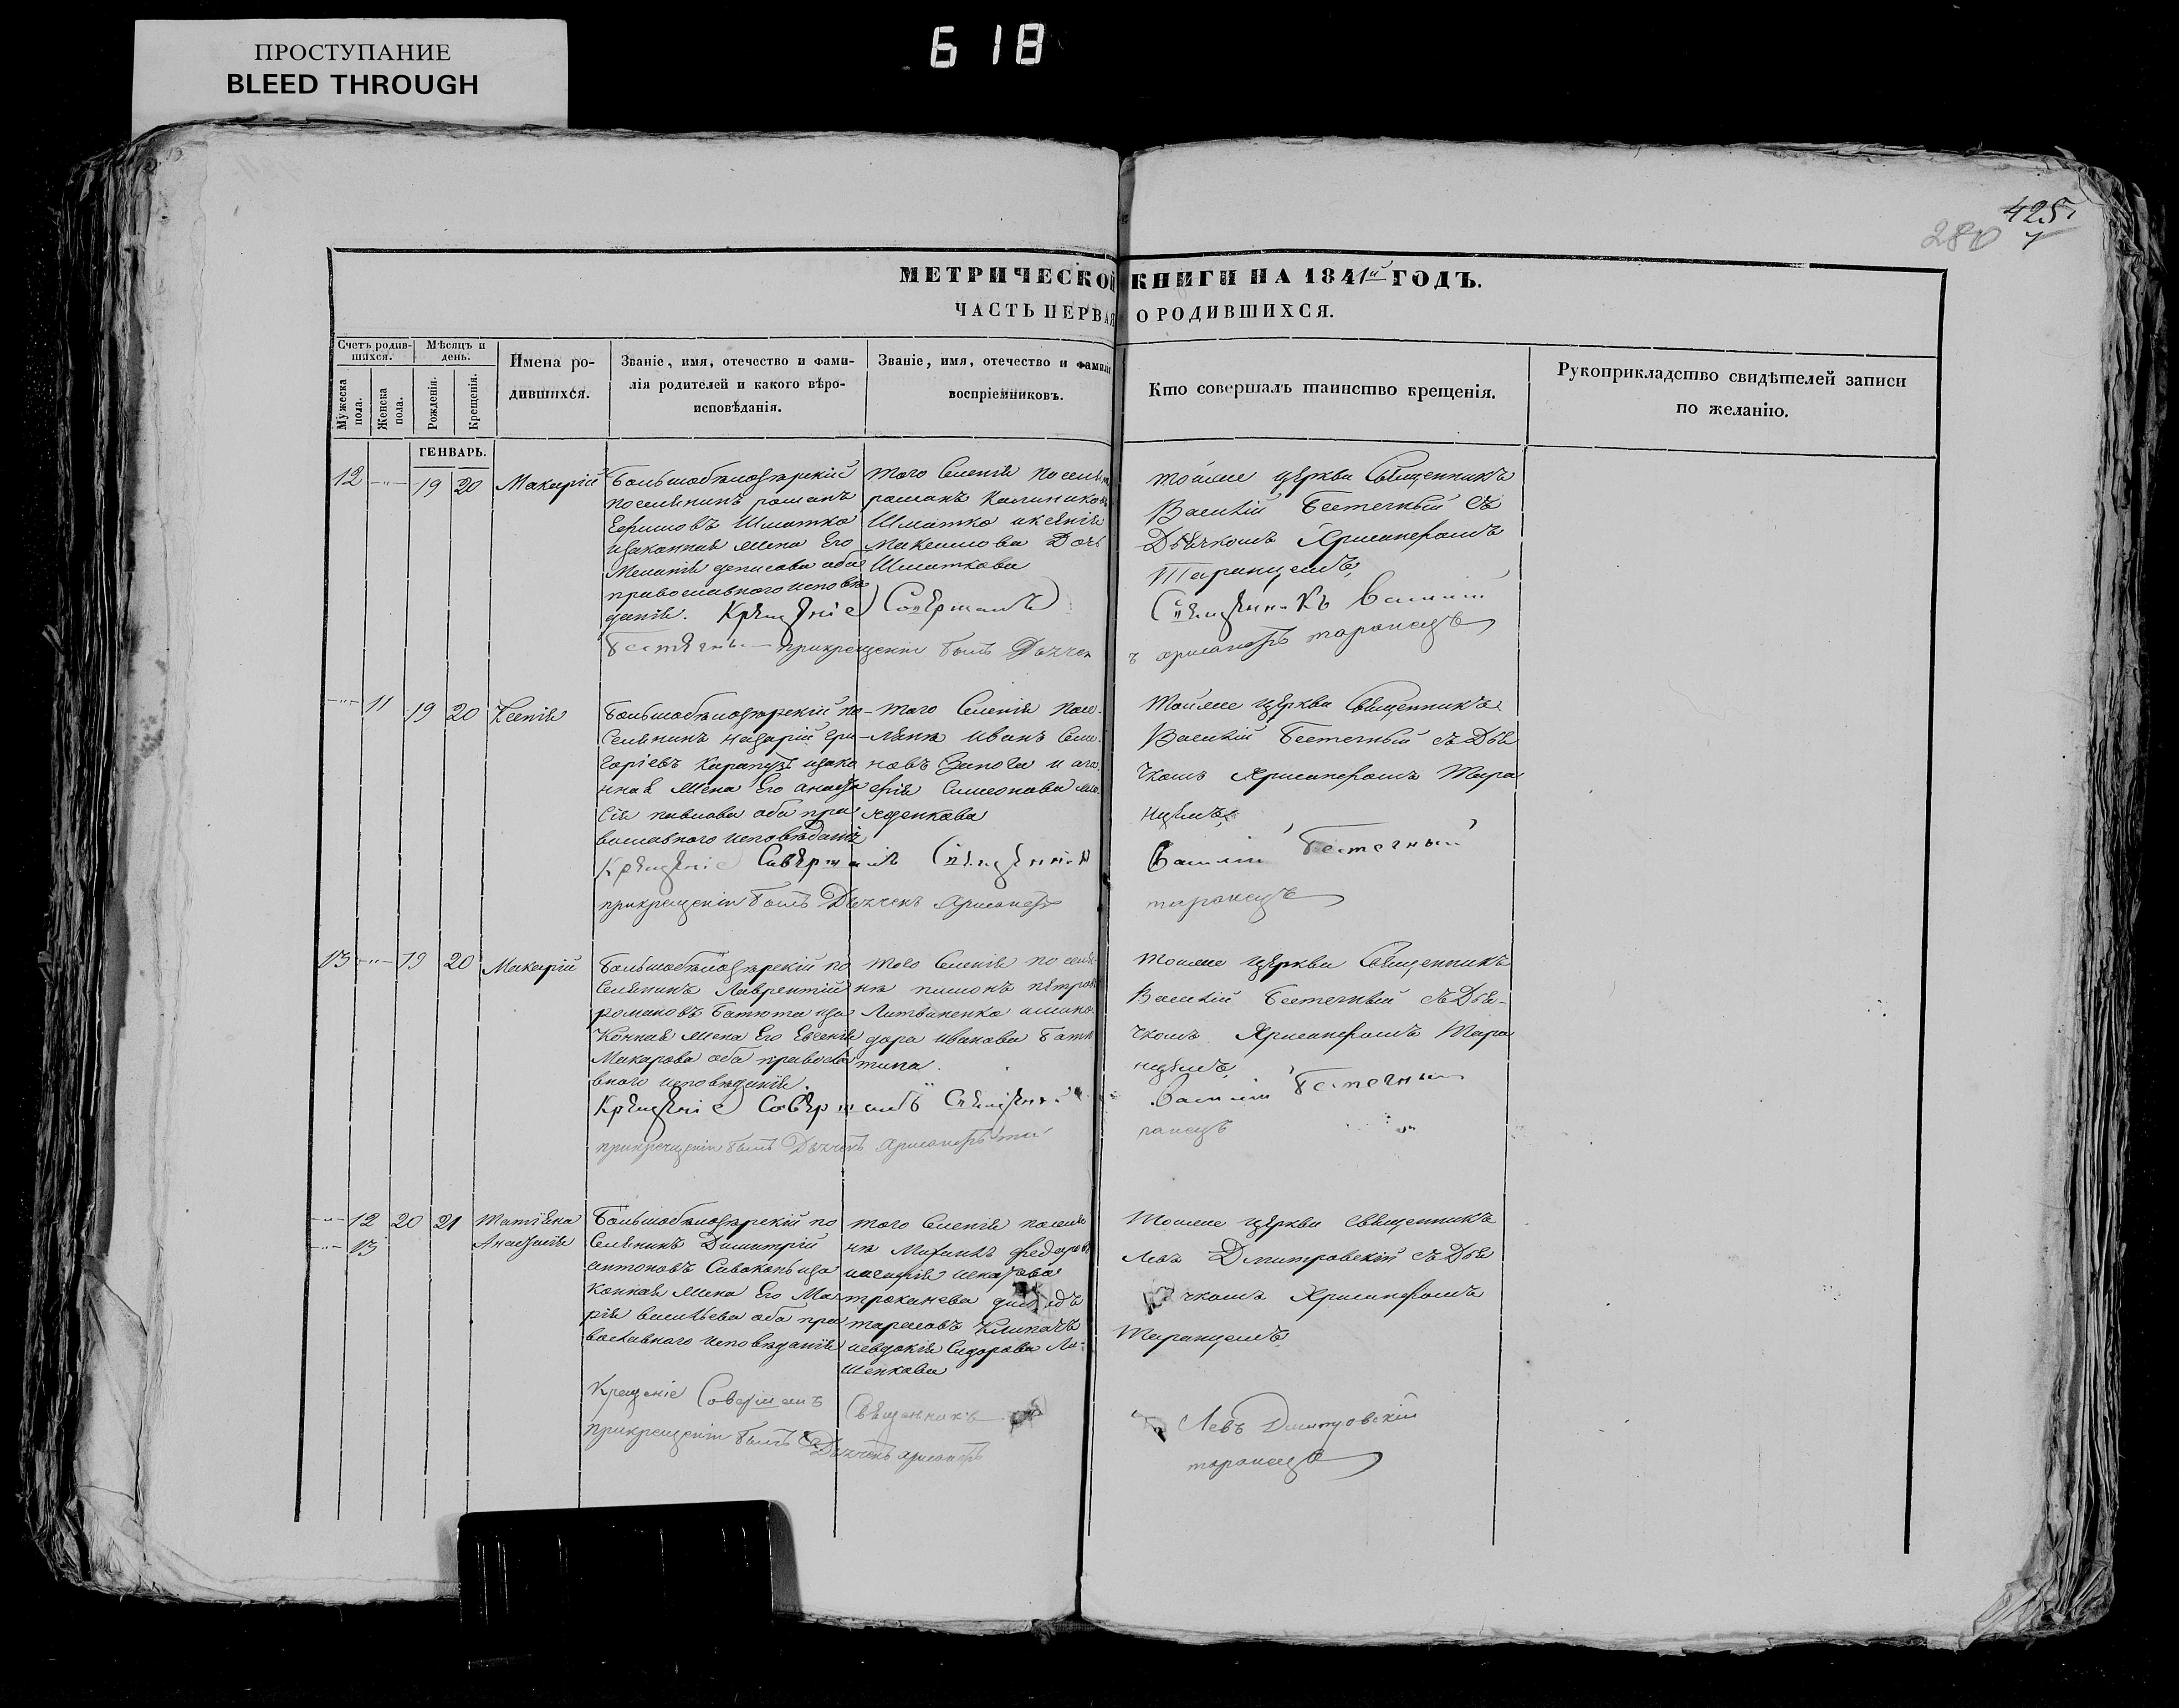 ПРОСТУПАНИЕ
BLEED THROUGH
618
425
280
МЕТРИЧЕСКОЙ КНИГИ НА 1841й ГОДЪ.
ЧАСТЬ ПЕРВАЯ О РОДИВШИХСЯ.
Счетъ родив-
шихся.
Мѣсяцъ и
день.
Мужеска
пола.
Женска
пола.
Рожденія.
Крещенія.
Имена ро-
дившихся.
Званіе, имя, отечество и фами-
лія родителей и какого вѣро-
исповѣданія.
Званіе, имя, отечество и фамилі
воспріемниковъ.
Кто совершалъ таинство крещенія.
Рукоприкладство свидѣтелей записи
по желанію.
ГЕНВАРЬ.
12 19 20 Макарій
поселянинъ романъ
Ефимовъ Шматко
изаконная жена Его
Меланія денисова оба
православного исповѣ
данія. Крещеніе Совершалъ
того Селенія поселян
романъ Калиников
Шматко иксенія
Максимова Дочь
Шматкова
тойже церкви Священникъ
Василій Бестечный съ
Дьячкомъ Хрисанфомъ
Таранцемъ
Священникъ Василій
прикрещеніи былъ Дьячек
хрисанфъ таранецъ
11 19 20 Ксенія
селянинъ назарій гри
горіевъ Карапузъ изако
нная жена Его анаста
сія павлова оба пра
вославного исповѣданія
Крещеніе Совершалъ Священник
прикрещеніи былъ Дьячекъ хрисанфъ
того Селенія посе-
лянъ иванъ Сем
фія Симеонова
тойже церкви Священникъ
Василій Бестечный съ Дья
чкомъ Хрисанфомъ Тара
нцемъ
Василій Бестечный
таранецъ
13 19 20 Макарій
Селянинъ Лаврентій
романовъ Батюта иза
Конная жена Его Евгенія
Макарова оба правосла
вного исповѣданія.
Крещеніе Совершалъ Священни
прикрещеніи былъ Дьячекъ хрисанфъ та
того Селенія поселя
нъ пимонъ петров
Литвиненко
дора иванова Батю
тина.
тойже церкви Священникъ
Василій Бестечный съ Дья-
чкомъ Хрисанфомъ Тара
нцемъ
Василій Бестечный
ранецъ
12 20 21 Татіяна
13 Анастасія
Селянинъ Димитрій
антоновъ Сивоконь иза
Конная жена Его Ма
рія васильева оба пра
вославного исповѣданія
Крещеніе Совершалъ Священникъ
прикрещеніи былъ Дьячекъ хрисанфъ
того Селенія поселя
нъ Михаилъ федоров
тарасовъ Климачъ
иевдокія Сидорова Ли
шенкова
тойже церкви священникъ
Левъ Дмитровскій съ Дья
чкомъ Хрисанфомъ
Таранцемъ
Левъ Дмитровскій
таранецъ